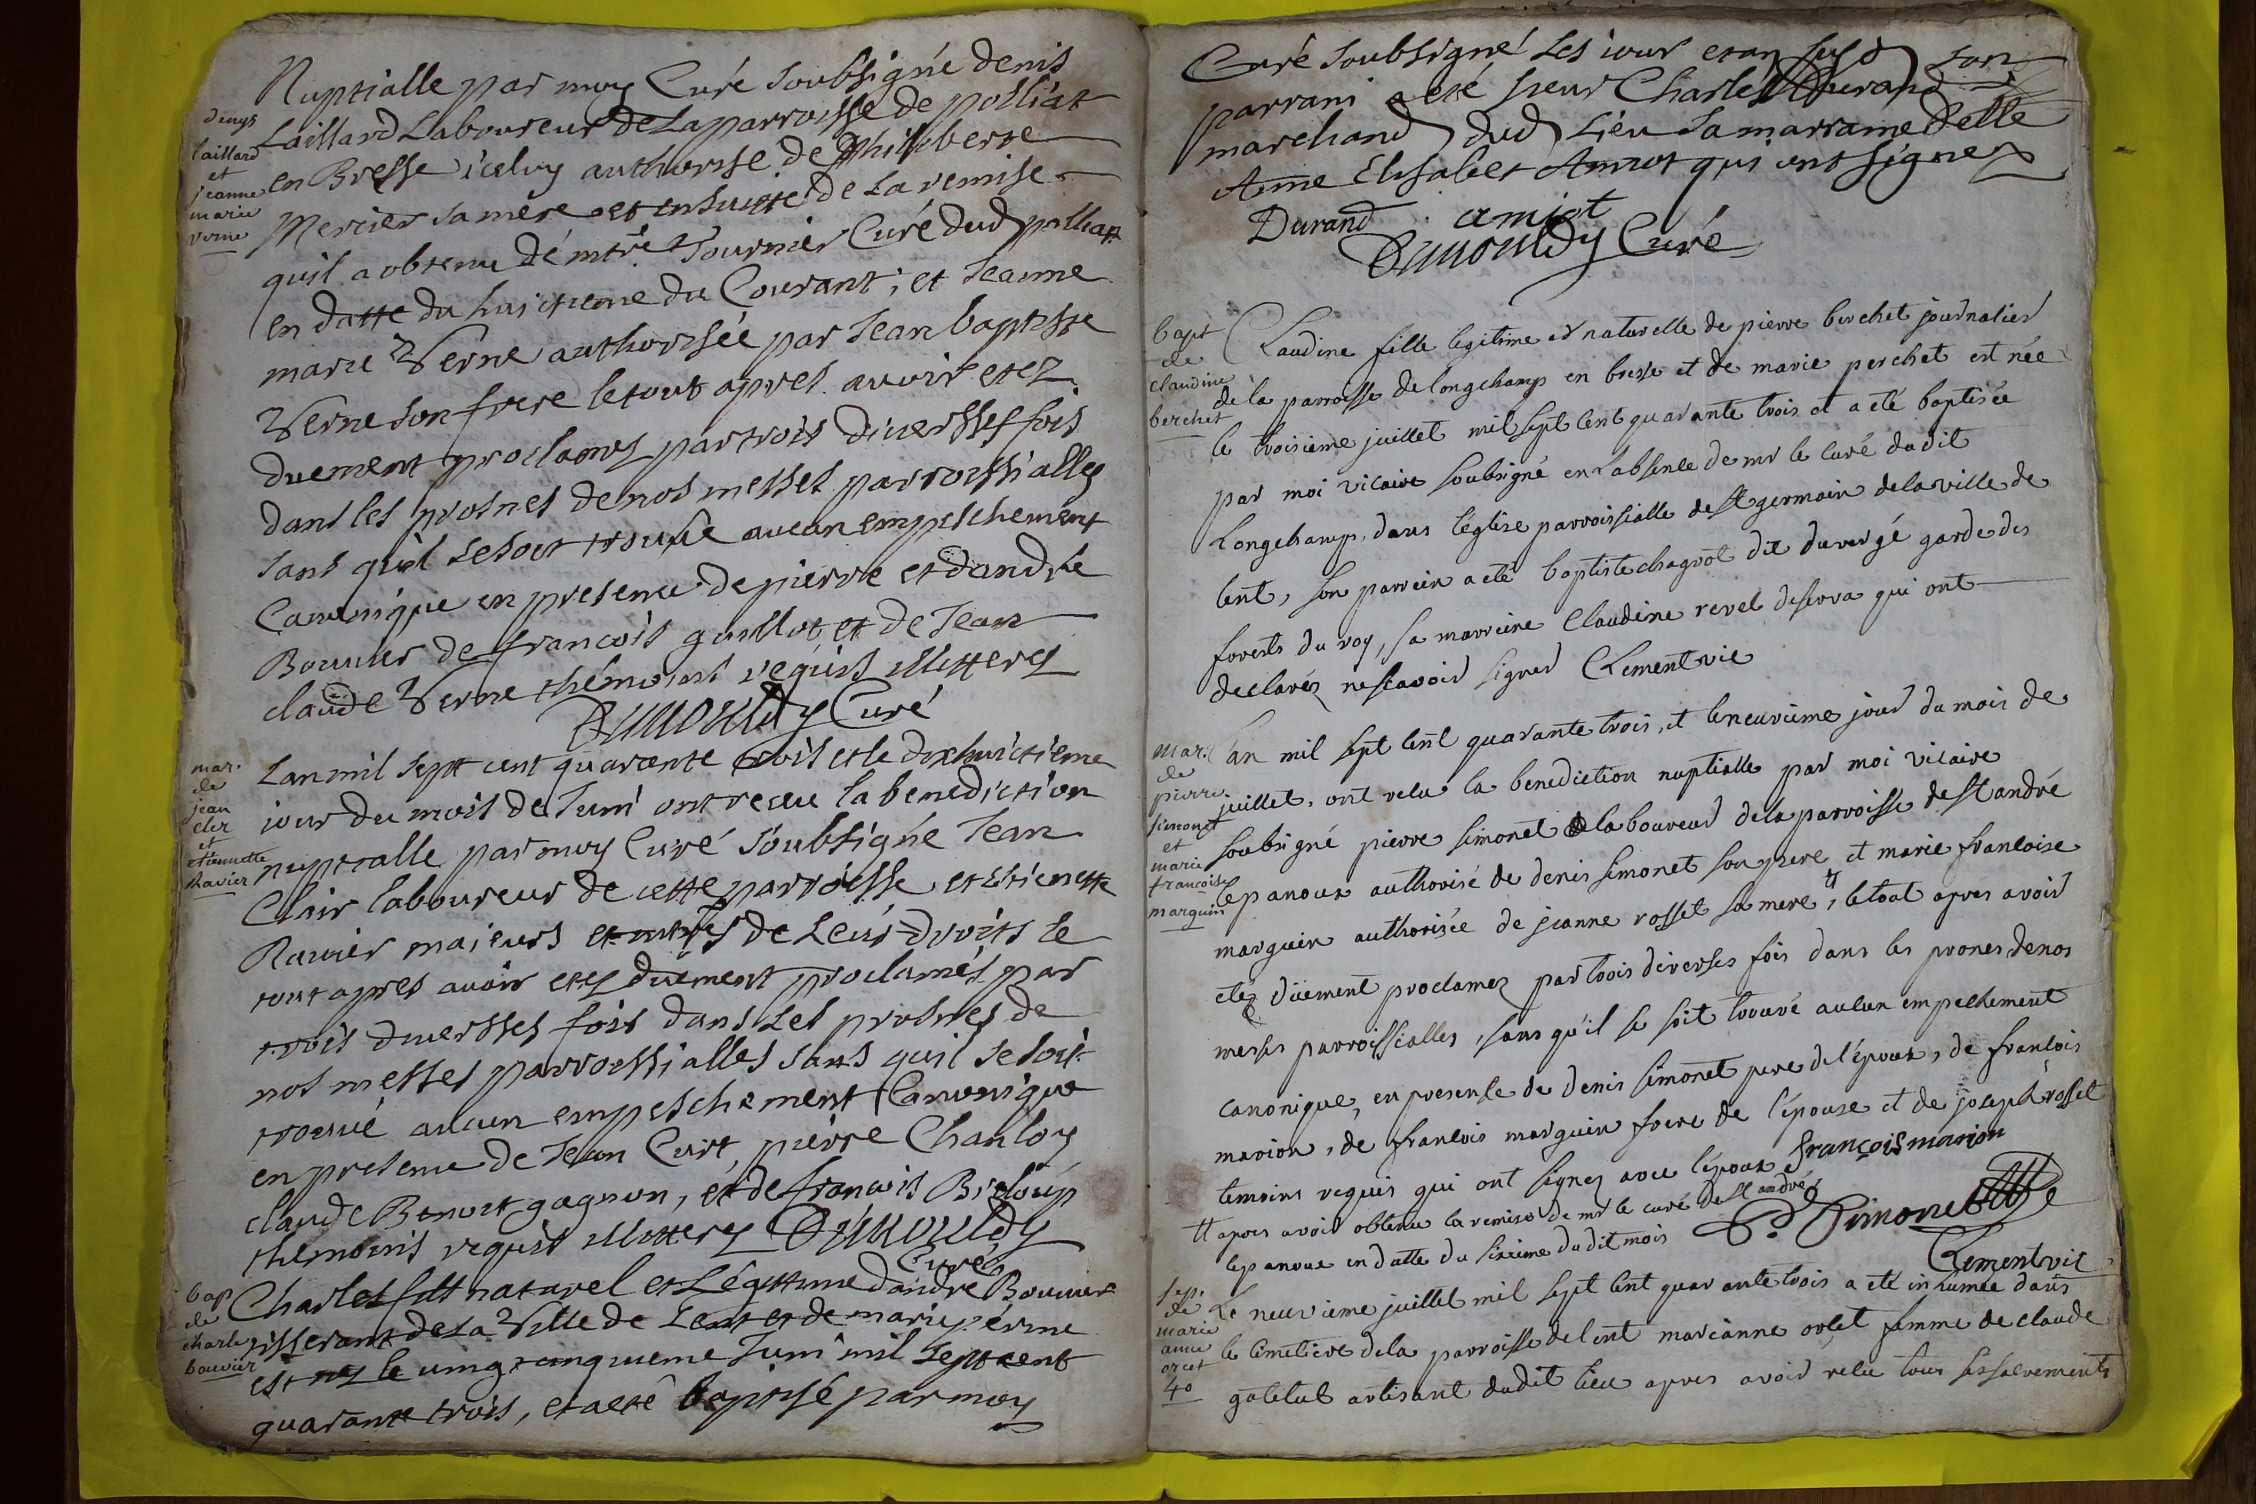 Nuptialle par moy Curé soubsigné denis
Laillard Laboureur de La parroisse de polliat
en Bresse iceluy authorise de Philiberte
Mercier sa mere et ensuitte de La remise
quil a obtenu de mtre Tournier Curé dud polliat
en datte du huictieme du Courant, et Jeanne
marie Verne authorisée par Jean baptiste
Verne son frere le tout apres avoir etez
duement proclamez par trois diversses fois
dans les prosnes de nos messes parroissialles
sans quil se soit trouvé aucun empeschement
Canonique en presence de pierre et dandré
Bouvier de francois guillot et de Jean
claude Verne thémoins requis illitterez
Dunouldy Curé
denys
laillard
et
jeanne
marie
verne
Lan mil sept cent quarante trois et le dixhuictieme
jour du mois de Juin ont receu la benediction
nuptialle par moy Curé soubsigné Jean
Clair laboureur de cette parroisse et Etienette
Ravier majeurs et mtres de Leurs droits le
tout apres avoir etez düement proclamés par
trois diversses fois dans Les prosnes de
nos messes parroissialles sans quil se soit
trouvé aucun empeschement Canonique
en presence de Jean Curt, pierre Chanloy
claude Benoit gagnon, et de francois Breloup
thémoins requis illitterez Dunouldy
Curé
mar.
de
jean
cler
et
etiennette
Ravier
Charles fils naturel et Légittime dandré Bouvier
tisserant de La Ville de Lent et de marie périne
est nez le vingt cinquieme Juin mil sept cent
quarante trois, et a eté baptisé par moy
bap.
de
charle
bouvier
Curé soubsigné Les jour et an susd son
parrain a eté sieur Charle Durand
marchand dud Lieu sa marraine delle
Anne Elisabet Amiot qui ont signez
Durand amiot
Dunouldy Curé
bapt
de
claudine
berchet
Claudine fille legitime et naturelle de pierre berchet journalier
de la parroisse de longchamp en bresse et de marie perchet est née
le troisieme juillet mil sept cent quarante trois et a eté baptisée
par moi vicaire soubsigné en l'absence de mr le curé dudit
Longchamp, dans léglise parroissialle de st germain de la ville de
lent, son parrein a eté baptiste chagrot dit duvergé garde des
forests du roy, sa marreine Claudine revel deserva qui ont
declarés ne scavoir signer Clement vic
mar.
de
pierre
simonet
et
marie
francoise
marguin
Lan mil sept cent quarante trois, et le neuvieme jour du mois de
juillet, ont relu la benediction nuptialle par moi vicaire
soubsigné pierre simonet laboureur de la parroisse de st andré
le panoux authorisé de denis simonet son pere et marie francoise
marguin authorisée de jeanne rosset sa mere, le tout apres avoir
etéz düement proclamez par trois diverses fois dans les prones de nos
messes parroissialles, sans qu'il se soit trouvé aucun empechement
canonique, en presence de denis simonet pere de l'époux, de francois
marion, de francois marguin frere de l'épouse et de joseph rosset
temoins requis qui ont signez avec l'époux françois marion
apres avoir obtenu la remise de mr le curé de st andré
le panoux en datte du sixieme du dit mois P. Simonet
Clement vic
sep.
de
marie
anne
orcet
40
Le neuvieme juillet mil sept cent quarante trois a eté inhumée dans
le cimetiere de la parroisse de lent marianne orcet femme de claude
gobelut artisant dudit lieu apres avoir relu tous ses sacrements